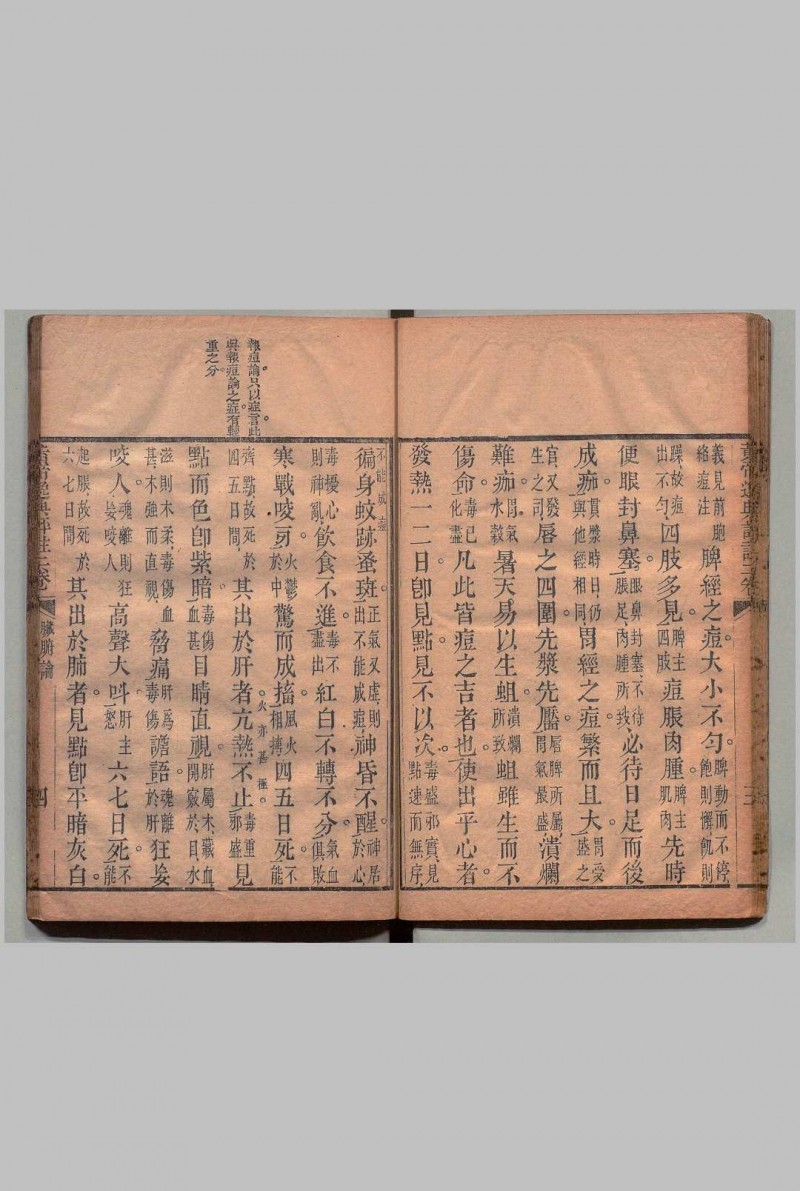 義見前胞絡痘注脾經之痘大小不勻。脾動而不停飽則懈飢則
躁故痘出不勻四肢多見。脾主四肢痘脹肉腫。脾主肌肉先時
便眼封鼻塞。眼鼻封塞不待脹足肉腫所致必待日足而後
成痂。貫漿時日仍與他經相同胃經之痘。繁而且大。胃受盛之
官又發生之司唇之四圍。先漿先靨。唇脾所屬胃氣最盛潰爛
難痂。胃氣水穀暑天易以生蛆。潰爛所致蛆雖生而不
傷命。毒已化盡凡此皆痘之吉者也。使出乎心者。
發熱一二日卽見點。見不以次。毒盛邪實見點速而無序
報痘論只以症言此
與報痘論之症有輕
重之分。
不能成痘
徧身蚊跡蚤斑。正氣又虛則出不能成痘神昏不醒。神居於心
毒擾心則神亂飲食不進。毒不盡出紅白不轉不分。氣血俱敗
寒戰咬牙。火鬱於中驚而成搐。風火相搏四五日死。不能
齊點故死於四五日間其出於肝者。亢熱不止。毒重邪盛見
火亦甚極。
點而色卽紫暗。毒傷血甚目睛直視。肝屬木藏血開竅於目水
滋則木柔毒傷血甚木強而直視脅痛。肝爲毒傷譫語。魂離於肝狂妄
咬人。魂離則狂妄咬人高聲大呌。肝主怒六七日死。不能
起脹故死於六七日間其出於肺者。見點卽平暗灰白。
臟腑論
四